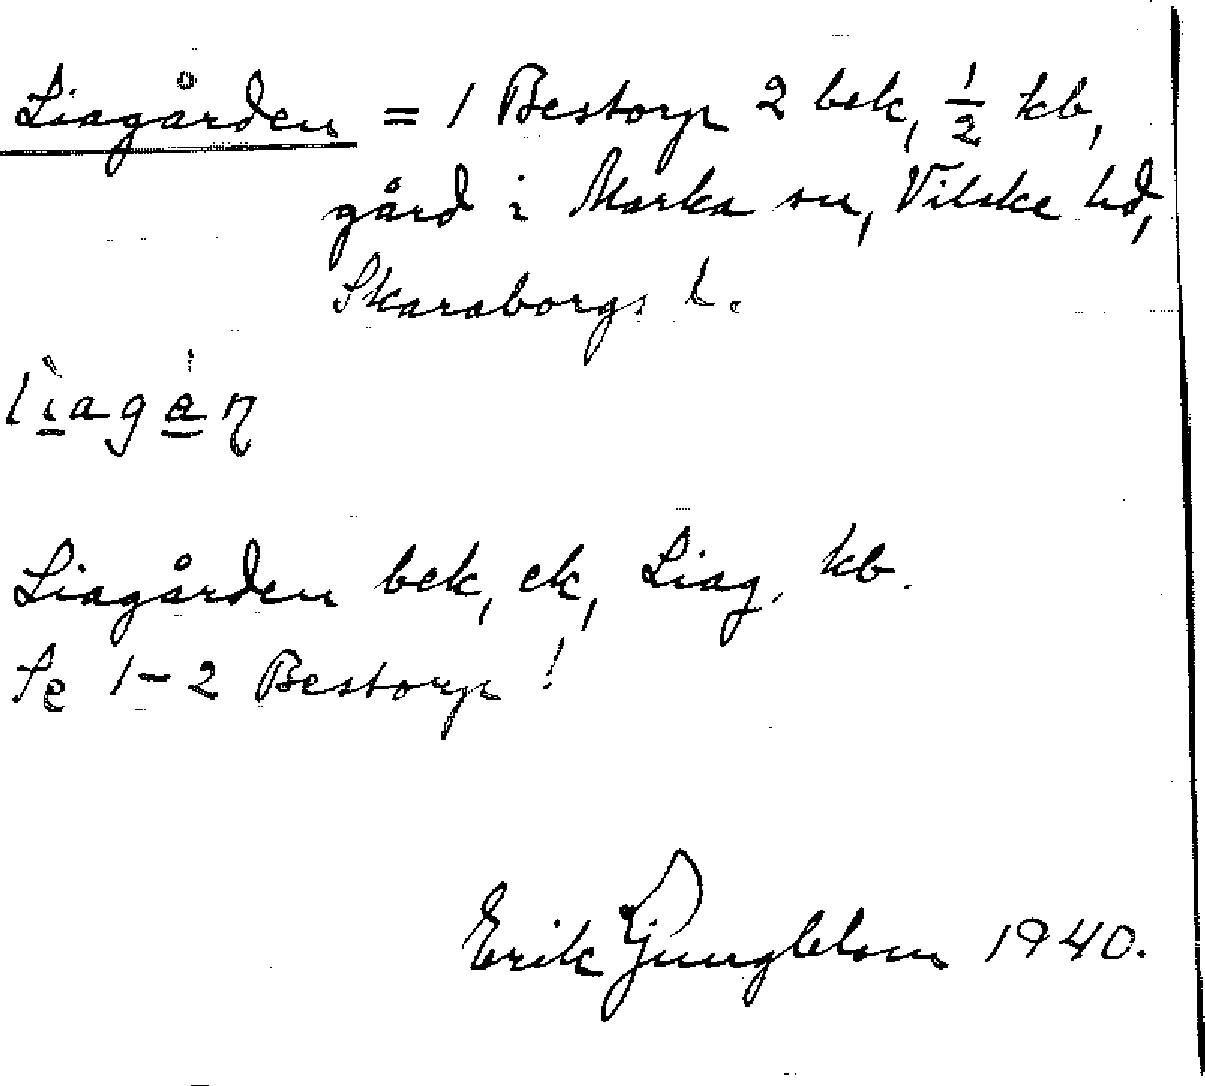 Liagården = 1 Bestorp 2 bek, 1/2 kb,
gård i Marka sn, Vilske hd,
Skaraborgs l.
Liagården bek, ek, Liag. kb.
Se 1-2 Bestorp!
Erik Ljungblom 1940.